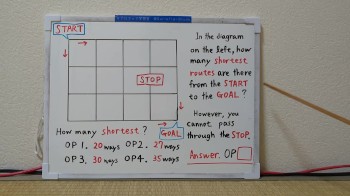 START
In the diagram
on the left, how
many shortest
routes are there
from the START
to the GOAL?
STOP
However, you
cannot pass
through the STOP.
How many shortest?
GOAL
OP 1. 20 ways OP 2. 27 ways
OP 3. 30 ways OP 4. 35 ways
Answer. OP